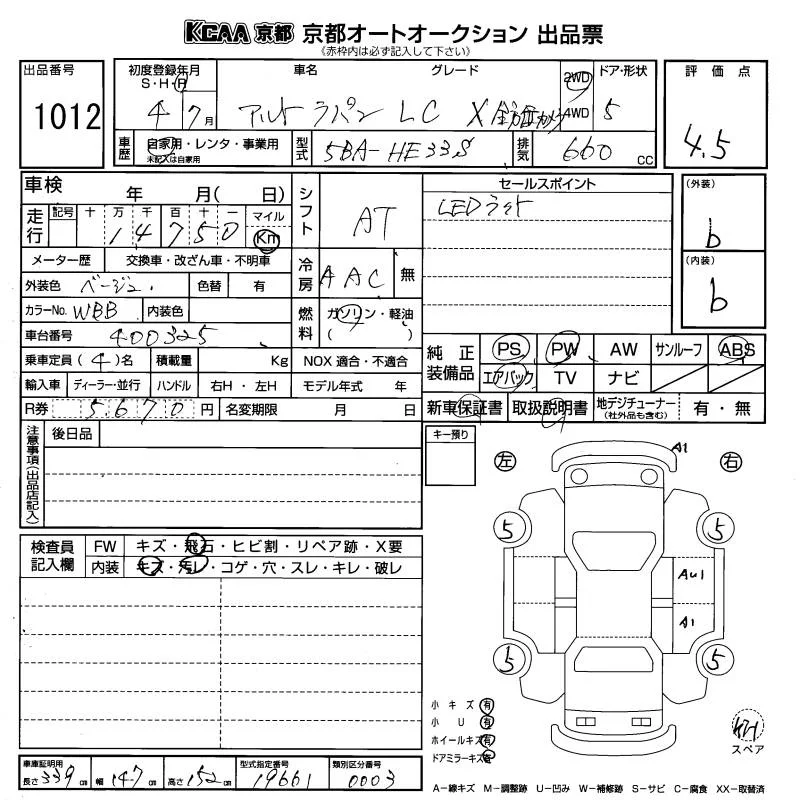 KCAA 京都 京都オートオークション 出品票
(赤枠内は必ず記入して下さい)
出品番号 1012
初度登録年月 S・H・R 4 7月
車名 グレード アルト ラパン LC X 全方位カメラ
2WD 4WD
ドア・形状 5
評価点 4.5
車歴 自家用・レンタ・事業用
未記入は自家用
型式 5BA-HE33S
排気 660 CC
車検 年 月( 日)
シフト AT
セールスポイント
LEDライト
(外装) b
(内装) b
走行 記号 十 万 千 百 十 一 マイル Km
14750
メーター歴 交換車・改ざん車・不明車
冷房 AAC 無
外装色 ベージュ 色替 有
カラーNo. WBB 内装色
燃料 ガソリン・軽油 ( )
車台番号 400325
乗車定員 (4)名 積載量 Kg NOX 適合・不適合
輸入車 ディーラー・並行 ハンドル 右H・左H モデル年式 年
R券 5,670円 名変期限 月 日
純正装備品 PS PW AW サンルーフ ABS
エアバック TV ナビ
新車保証書 取扱説明書 地デジチューナー (社外品も含む) 有・無
注意事項(出品店記入) 後日品
キー預り
左 右
A1
5 5
AU1
A1
5 5
検査員記入欄 FW キズ・飛石・ヒビ割・リペア跡・X要
内装 キズ・汚レ・コゲ・穴・スレ・キレ・破レ
小キズ 有
小U 有
ホイールキズ 有
ドアミラーキズ 有
スペア
車庫証明用 長さ 339 cm 幅 147 cm 高さ 152 cm
型式指定番号 19661
類別区分番号 0003
A-線キズ M-調整跡 U-凹み W-補修跡 S-サビ C-腐食 XX-取替済